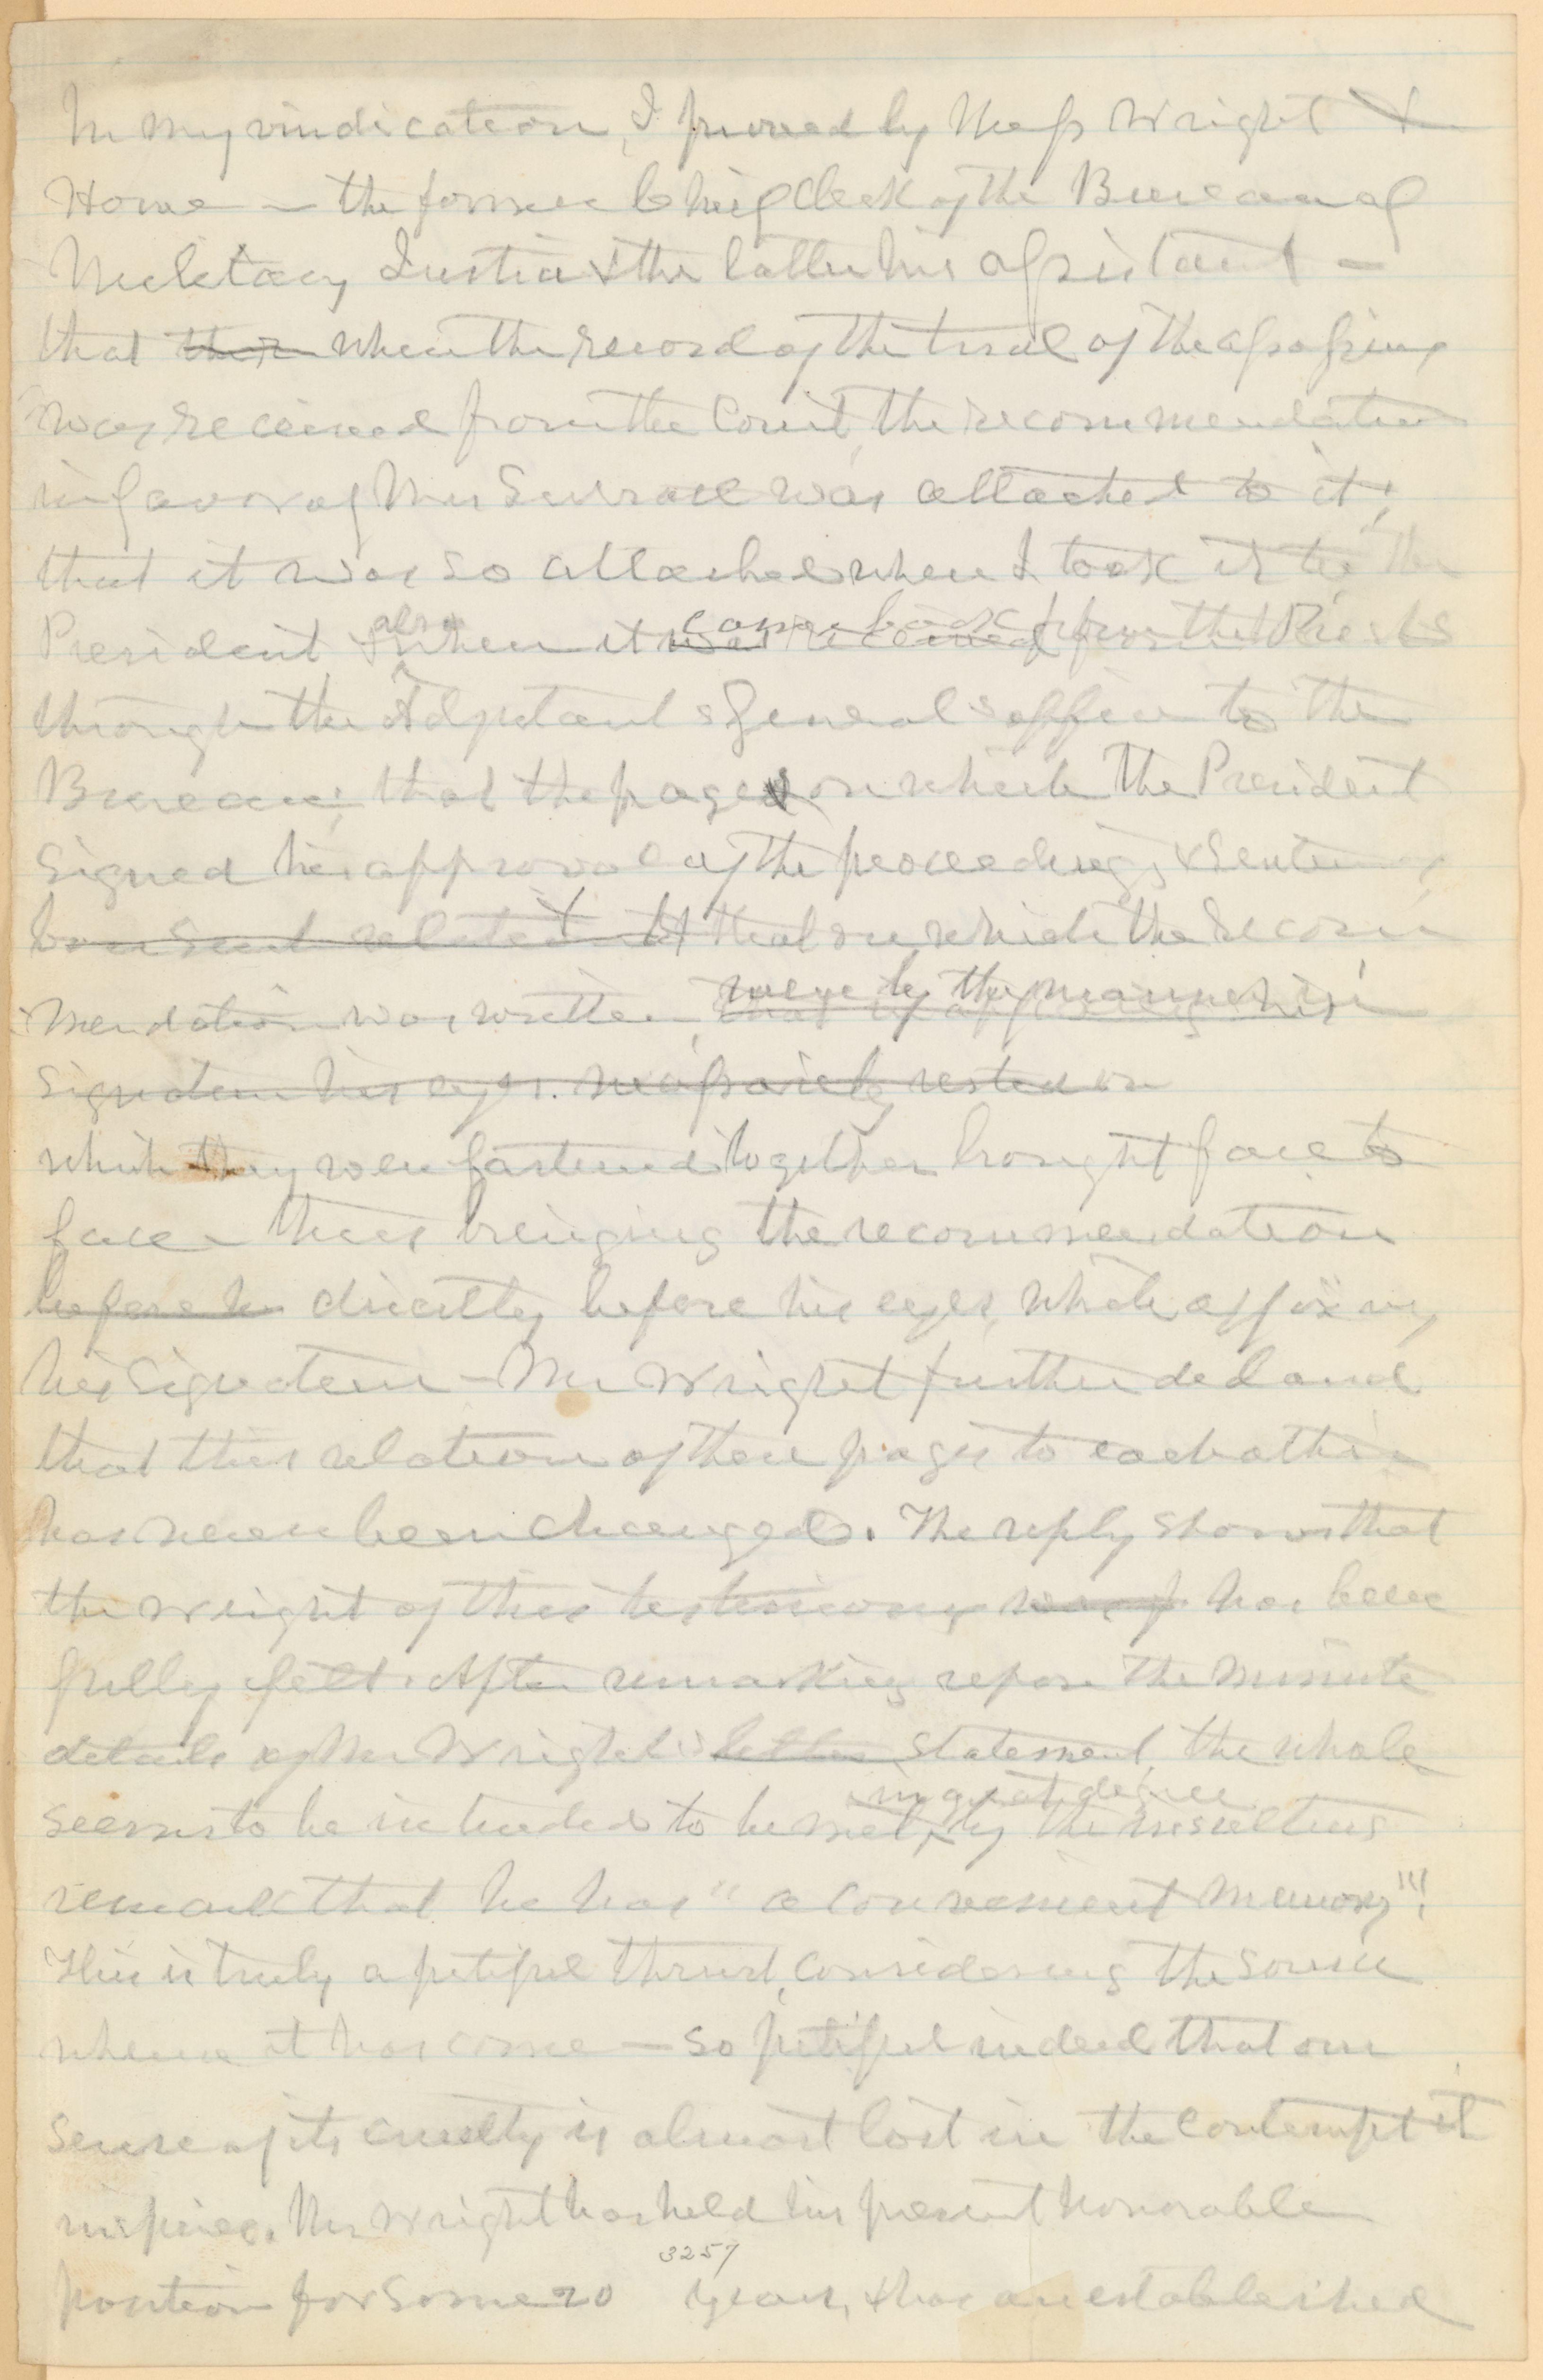 In my vindication, I proved by Mess Wright &
Howe — the former Chief Clerk of the Bureau of
Military Justice & the latter his assistant —
that then when the record of the trial of the assassins
was received from the Court, the recommendation
in favor of Mrs Surratt was attached to it;
that it was so attached when I took it to the
President & also when it was received came back from the Presdt
through the Adjutant General's office to the
Bureau; that the pages on which the President
signed his approval of the proceedings & sentence
& that on which the recom
mendation was written, that in affixing his were by the manner in
signature his eyes necessarily rested on
which they were fastened together brought face to
face — thus bringing the recommendation
before his directly before his eyes, while affixing
his signature — Mr Wright further declared
that this relation of these pages to each other
has never been changed. The reply shows that
the weight of this testimony has been
fully felt. After remarking upon the minute
details of Mr Wright's letter statement, the whole
seems to be intended to be met, in great degree by the insulting
remark that he has "a convenient memory"!!
This is truly a pitiful thrust, considering the source
whence it has come — so pitiful indeed that our
sense of its cruelty is almost lost in the contempt it
inspires. Mr Wright has held his present honorable
3257
position for some 20 years, & has an established